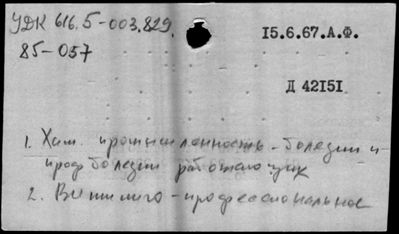 УДК 616.5-003.829.
15.6.67.А.Ф.
85-057
Д 42151
1. Хим. промышленность - болезни и
проф болезни работающих
2. Витилиго - профессиональное